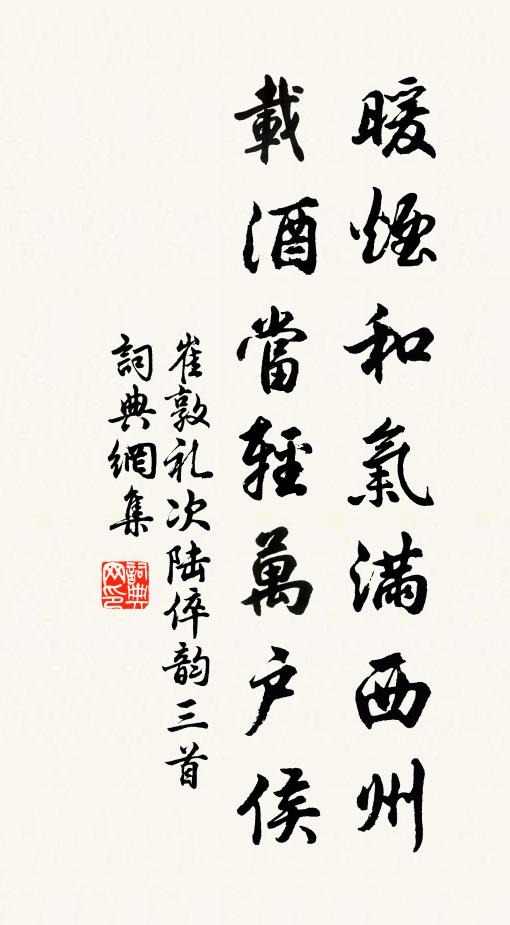 暖煙和氣滿西州
載酒當輕萬户侯
崔敦礼次陆倅韵三首
詞典網集
詞典网印